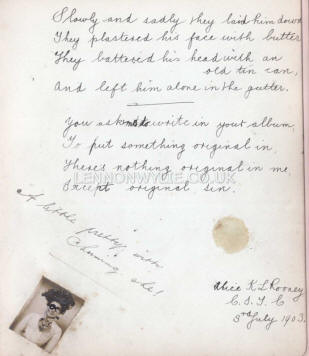 Slowly and sadly they laid him down
They plastered his face with butter
They battered his head with an
old tin can,
And left him alone in the gutter.
You ask me to write in your album
To put something original in,
There's nothing original in me,
Except original sin.
LENNONWYLIE.CO.UK
A little pretty, with
she!
Alice K L Rooney
C.S.I.C
3rd July 1903.